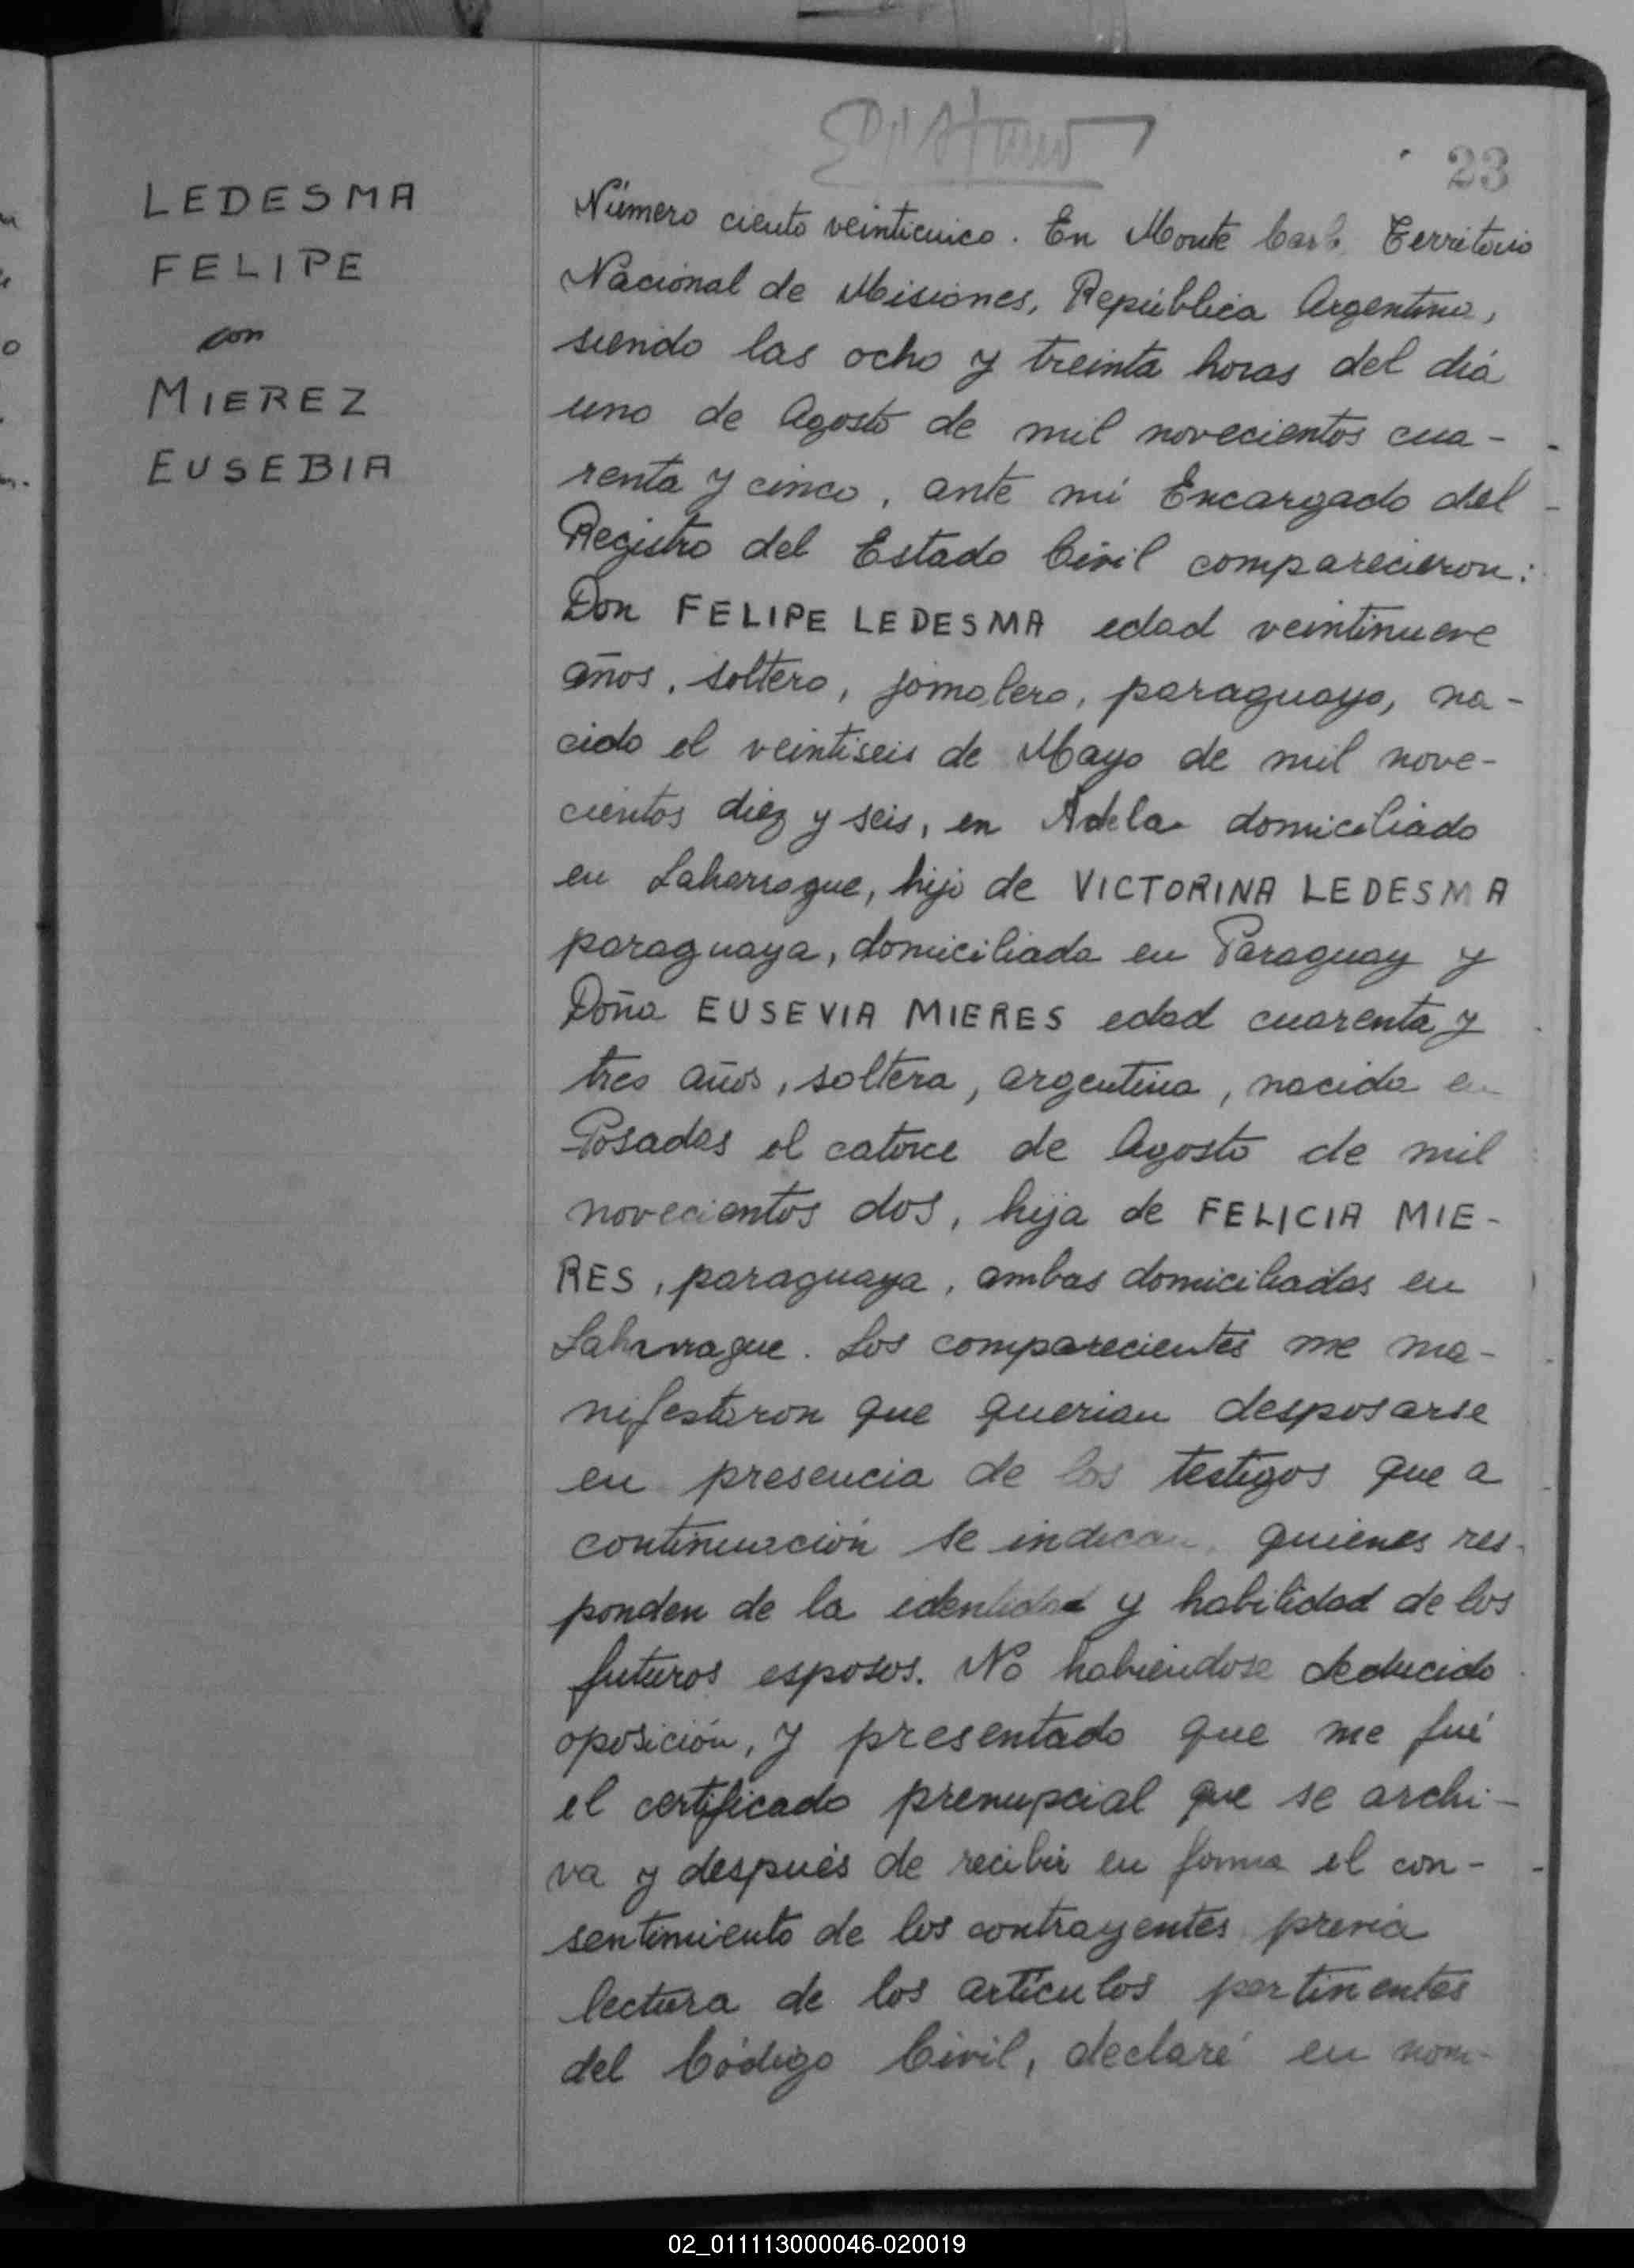 23
LEDESMA
FELIPE
con
MIEREZ
EUSEBIA
Número ciento veinticinco. En Monte Carlo Territorio
Nacional de Misiones, República Argentina,
siendo las ocho y treinta horas del día
uno de Agosto de mil novecientos cua-
renta y cinco, ante mí Encargado del
Registro del Estado Civil comparecieron:
Don FELIPE LEDESMA edad veintinueve
años, soltero, jornalero, paraguayo, na-
cido el veintiseis de Mayo de mil nove-
cientos diez y seis, en Adela domiciliado
en Laharrague, hijo de VICTORINA LEDESMA
paraguaya, domiciliada en Paraguay y
Doña EUSEVIA MIERES edad cuarenta y
tres años, soltera, argentina, nacida en
Posadas el catorce de Agosto de mil
novecientos dos, hija de FELICIA MIE-
RES, paraguaya, ambas domiciliadas en
Laharrague. Los comparecientes me ma-
nifestaron que querian desposarse
en presencia de los testigos que a
continuación se indican, quienes res-
ponden de la identidad y habilidad de los
futuros esposos. No habiendose deducido
oposición, y presentado que me fué
el certificado prenupcial que se archi-
va y después de recibir en forma el con-
sentimiento de los contrayentes previa
lectura de los artículos pertinentes
del Código Civil, declaré en nom-
02_011113000046-020019